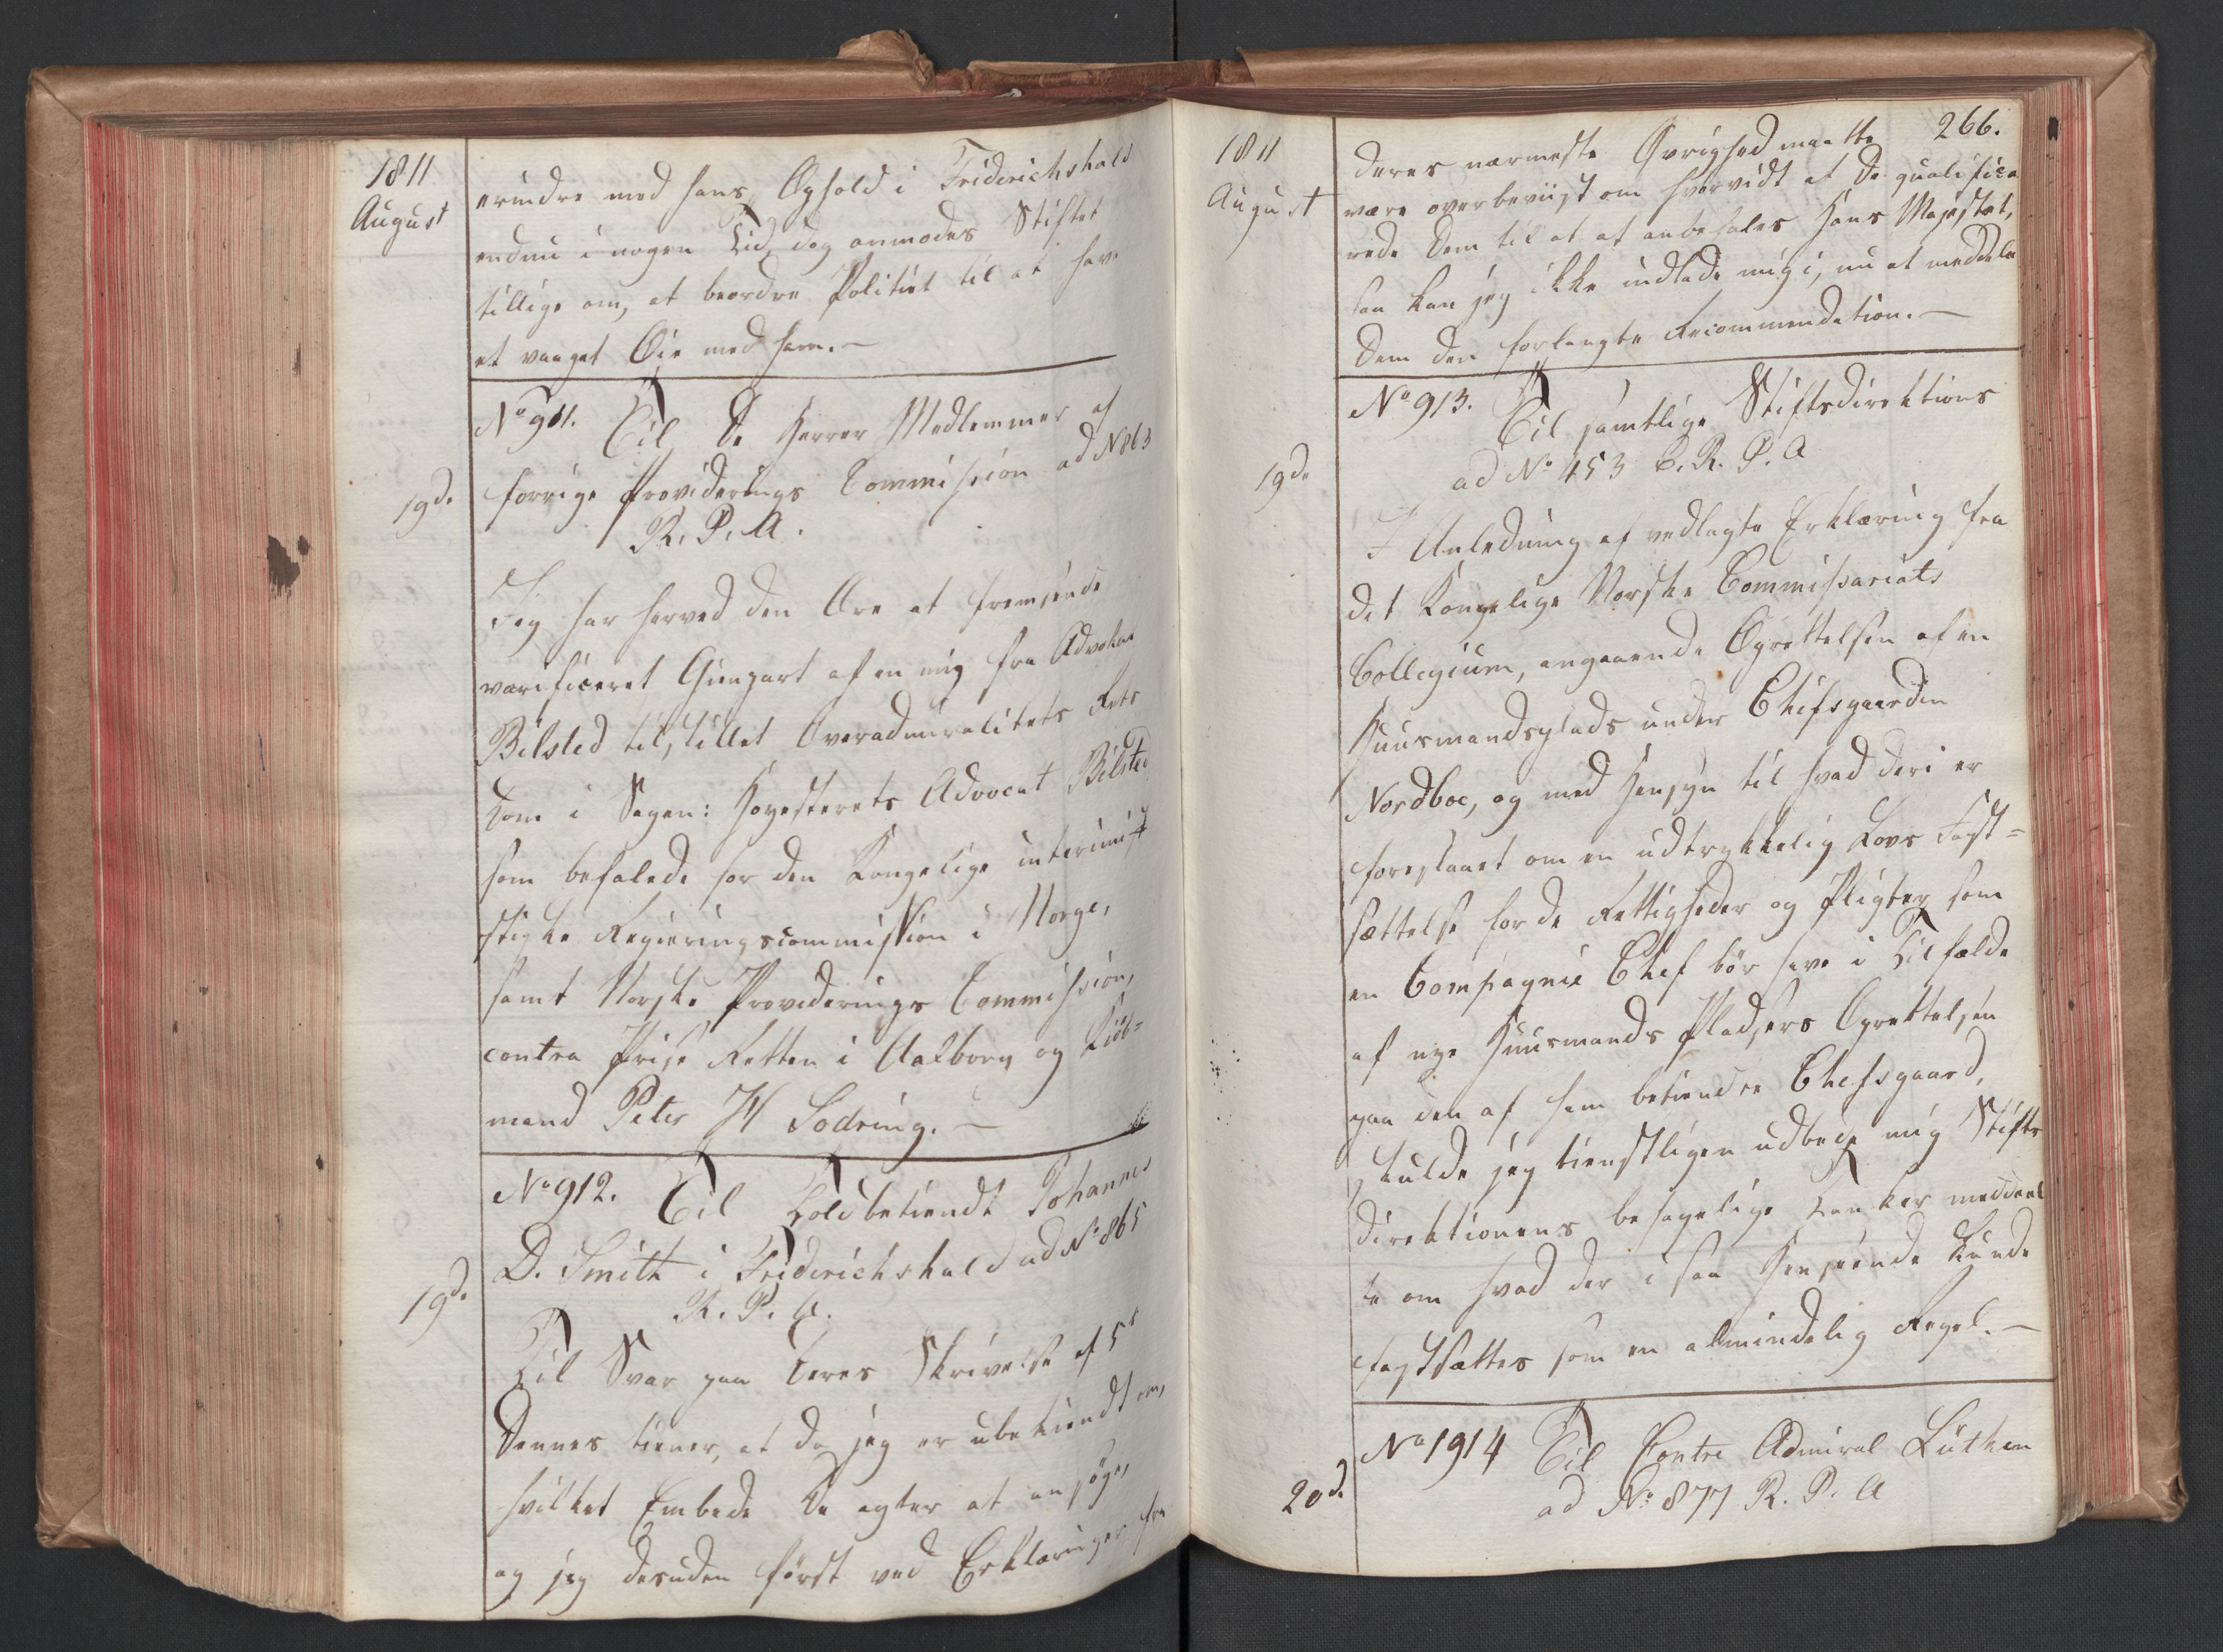 1811
August
erindre mod hans Ophold i Friderichshald
endnu i nogen Tid, dog anmodes Stiftet
tillige om, at beordre Politiet til at have
et vaaget Öie med ham. —
No 911. Til De Herrer Medlemmer af
19de forrige Providerings Commission ad N 863
R. P. A.
Jeg har herved den Ære at fremsende
verificeret Gienpart af en mig fra Advokat
Bilsted tilstillet Overadmiralitets Rets
Dom i Sagen: Höyesterets Advocat Bilsted
som befalede for den Kongelige interimi-
stiske Regieringscommission i Norge,
samt Norske Provideringe Commission,
contra Prise Retten i Aalborg og Kiöb-
mand Peter H Sodring. —
No 912. Til Toldbetiendt Johannes
19de D. Smith i Friderichshald ad No 865
R. P. A.
Til Svar paa Deres Skrivelse af 5t
Dennes tiener, at da jeg er ubekiendt om,
hvilket Embede De agter at ansöge,
og jeg desuden först ved Erklæringer fra
266.
1811
August
Deres nærmeste Övrighed maatte
være overbeviist om hvorvidt at De qualifice-
rede Dem til at anbefales Hans Majestæt,
saa kan jeg ikke indlade mig i, nu at meddele
Dem den forlangte Recommendation. —
No 913. Til samtlige Stiftsdirektions
19de ad No 453 C. R. P. A
I Anledning af vedlagte Erklæring fra
det Kongelige Norske Commissariats
Collegium, angaaende Oprettelsen af en
Huusmandsplads under Chefsgaarden
Nordboe, og med Hensyn til hvad deri er
foreslaaet om en udtrykkelig Lovs Fast-
sættelse for de Rettigheder og Pligter som
en Compagnie Chef bör have i Tilfælde
af nye Huusmands Pladsers Oprettelsen
paa den af ham betiendte Chefsgaard,
skulde jeg tienstligen udbede mig Stifts
direktionens behagelige Tanker meddeel
te om hvad der i saa Henseende kunde
fastsættes som en almindelig Regel. —
No 1914 Til Contre Admiral Lütken
20de ad No 877 R. P. A